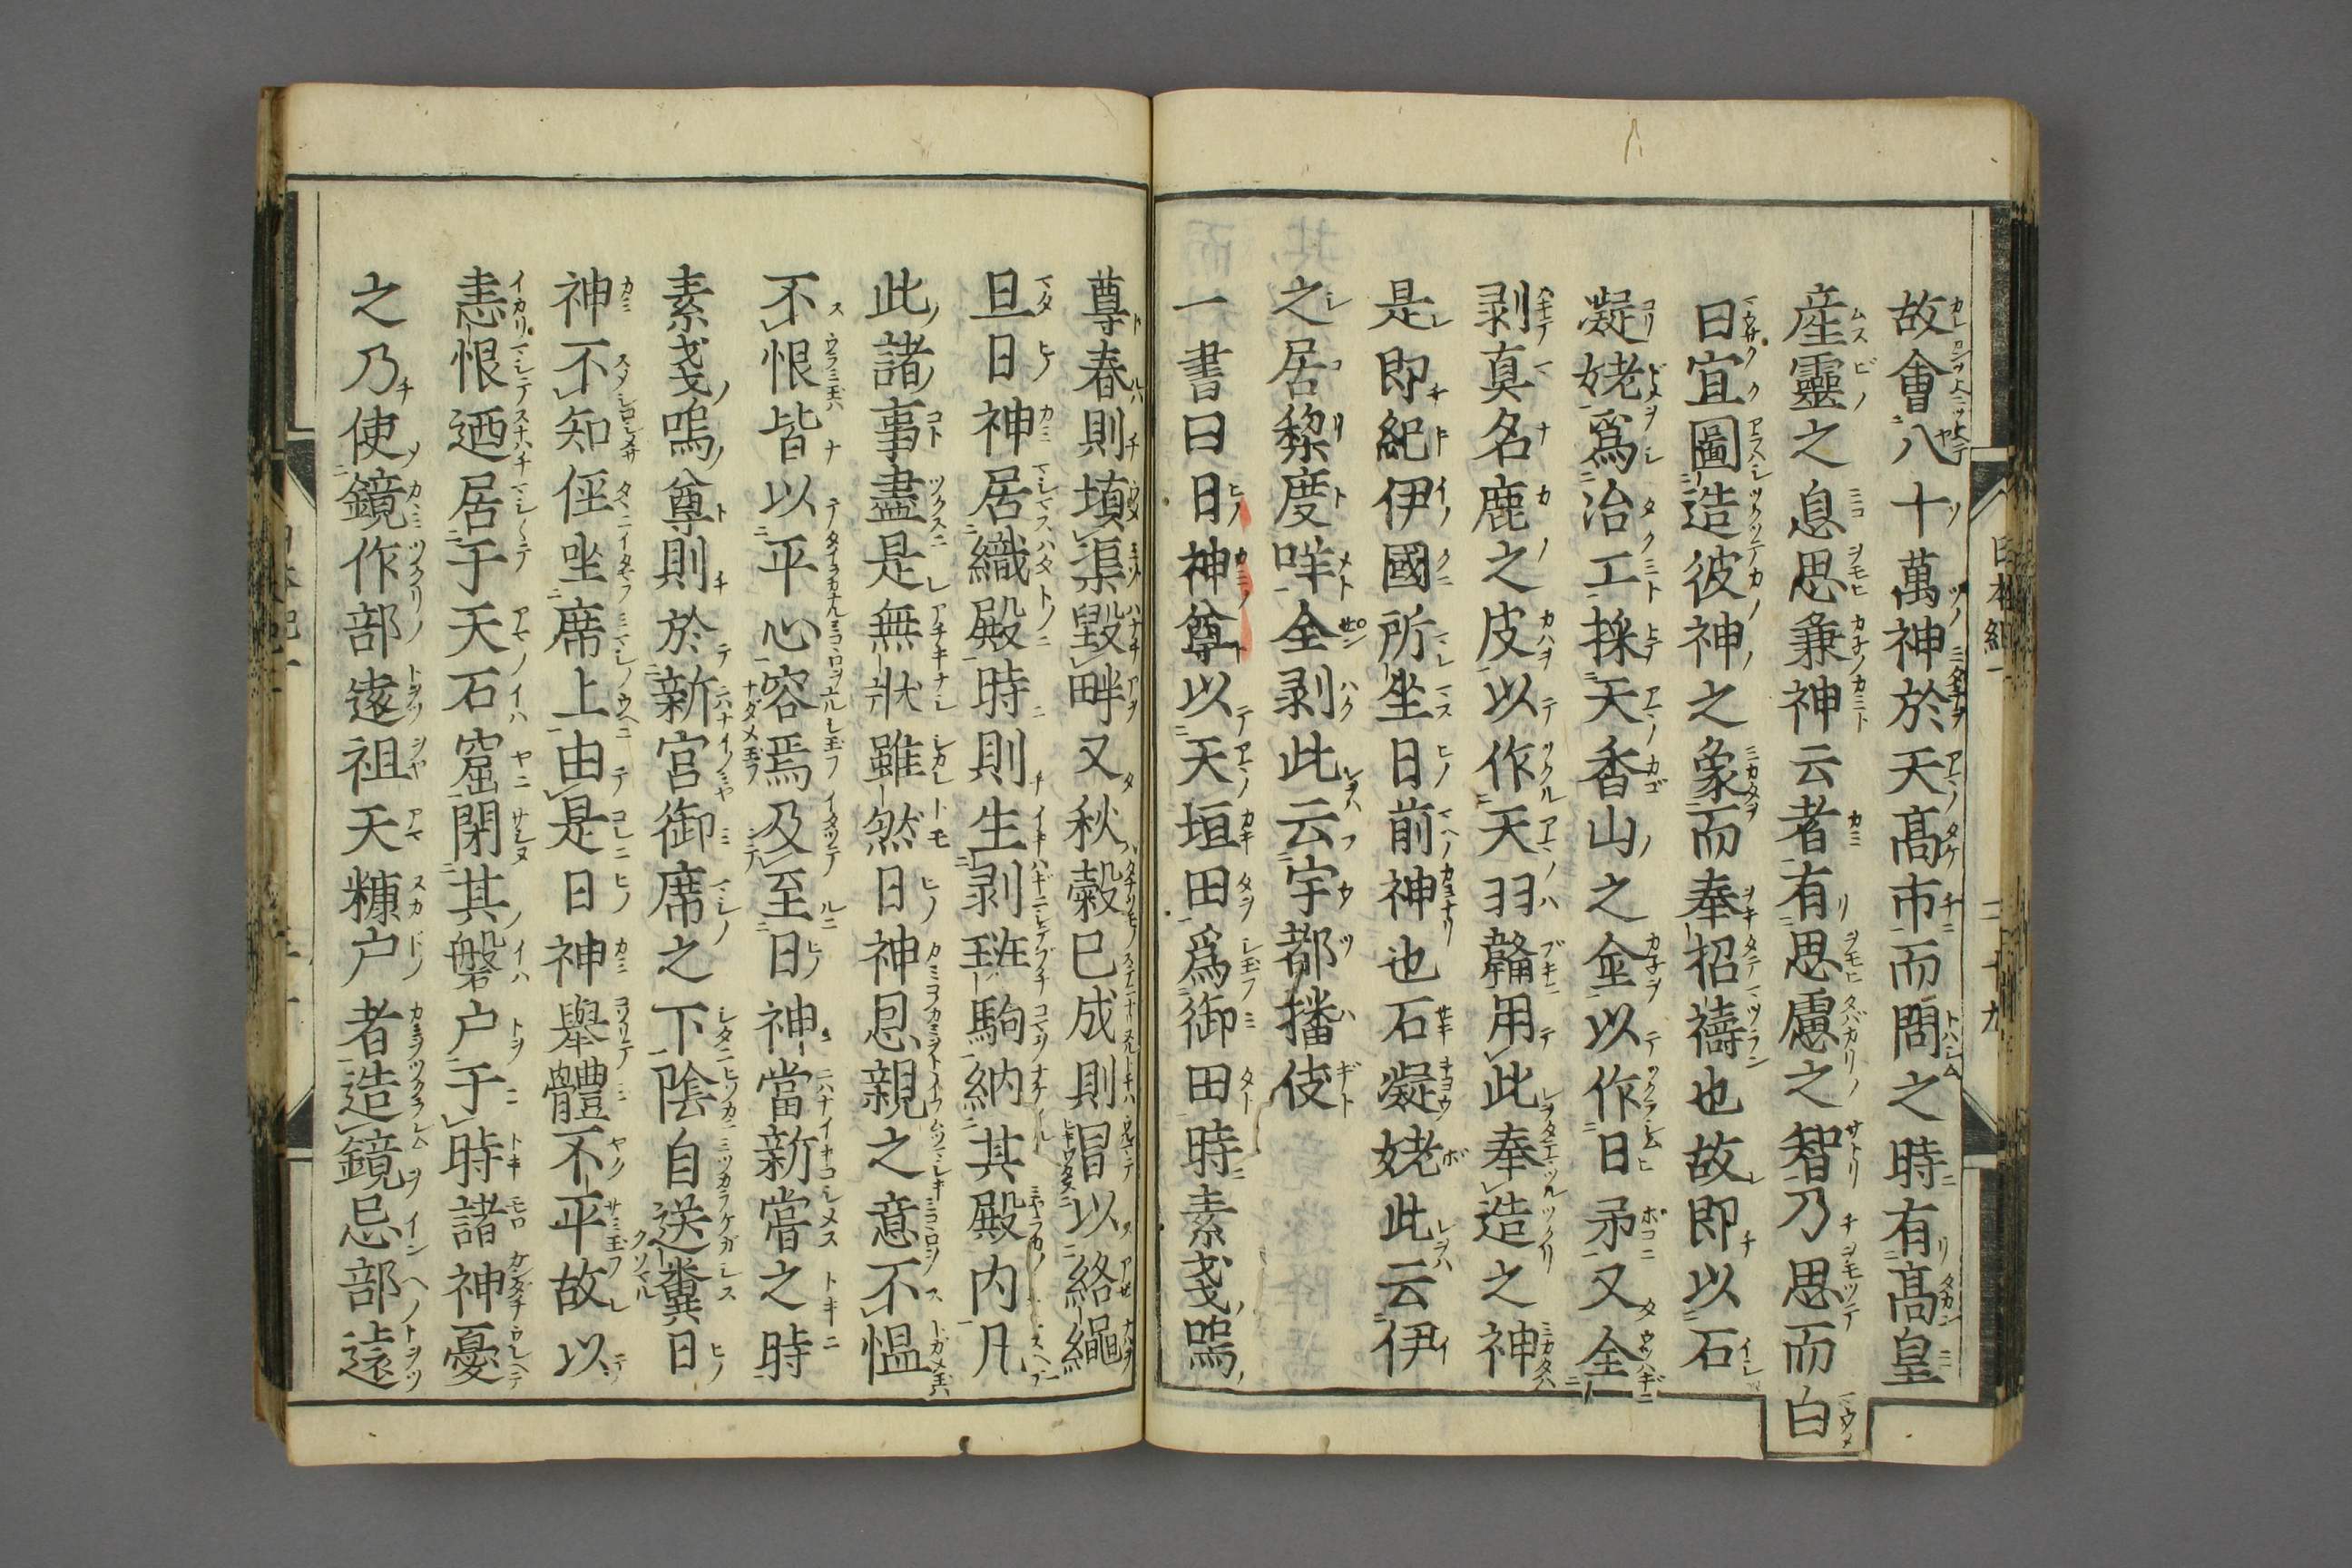 故會八十萬神於天髙市而問之時有髙皇
産靈之息思兼神云者有思慮之智乃思而白
曰宜圖造彼神之象而奉招禱也故即以石
凝姥爲冶工採天香山之金以作日矛又全
剥真名鹿之皮以作天羽鞴用此奉造之神
是即紀伊國所坐日前神也石凝姥此云伊
之居梨度咩全剥此云宇都播伎
一書曰日神尊以天垣田爲御田時素戔嗚
尊春則填渠毀畔又秋穀已成則冒以絡繩
且日神居織殿時則生剥斑駒納其殿内凡
此諸事盡是無狀雖然日神恩親之意不慍
不恨皆以平心容焉及至日神當新嘗之時
素戔嗚尊則於新宮御席之下陰自送糞日
神不知俓坐席上由是日神舉體不平故以
恚恨迺居于天石窟閉其磐户于時諸神憂
之乃使鏡作部遠祖天糠户者造鏡忌部遠
日本紀一
二十九